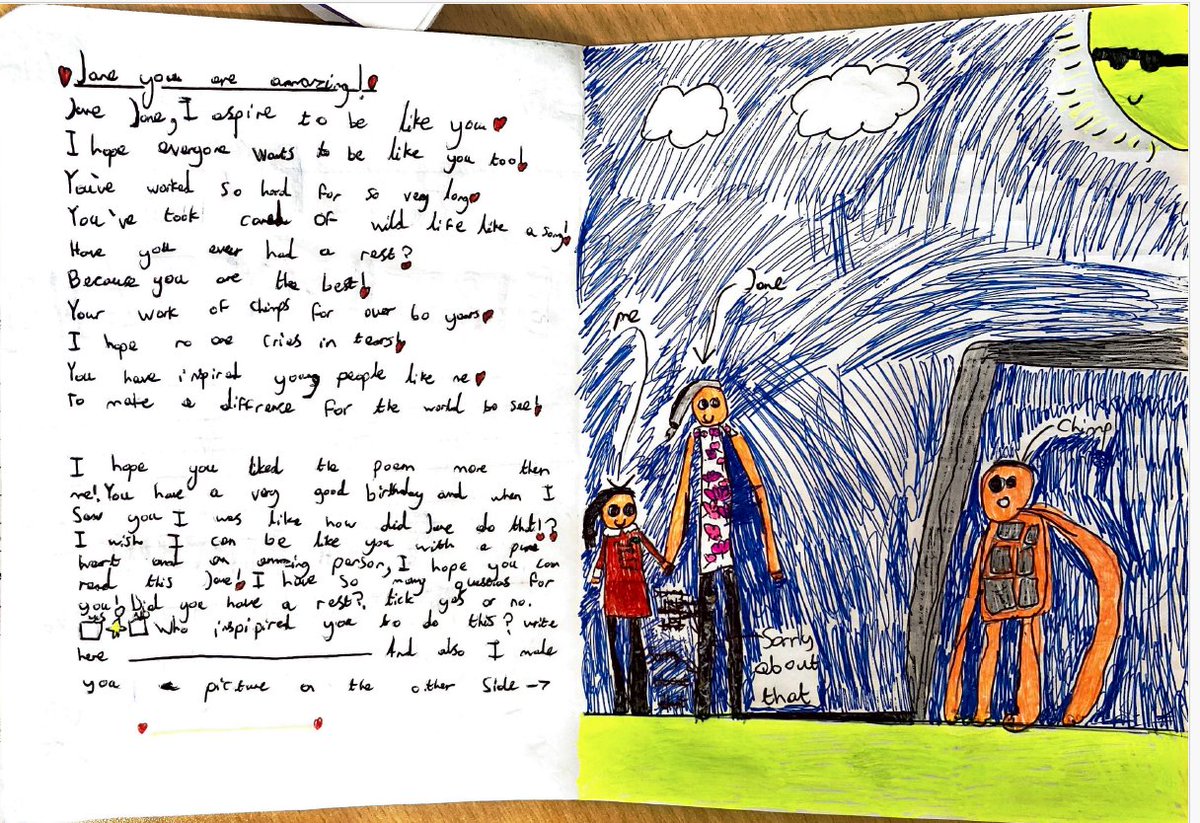 Jane you are amazing!
Jane Jane, I aspire to be like you
I hope everyone wants to be like you too!
You've worked so hard for so very long
You've took care of wild life like a song!
Have you ever had a rest?
Because you are the best!
Your work of chimps for over 60 years
I hope no one cries in tears!
You have inspired young people like me
To make a difference for the world to see!
I hope you liked the poem more then
me! You have a very good birthday and when I
saw you I was like how did Jane do that!?
I wish I can be like you with a pure
heart and an amzing person, I hope you can
read this Jane! I have so many questions for
you! Did you have a rest? tick yes or no.
yes or no
Who inspipired you to do this? write
here And also I made
you a picture on the other side →
me
Jane
Chimp
Sorry
about
that